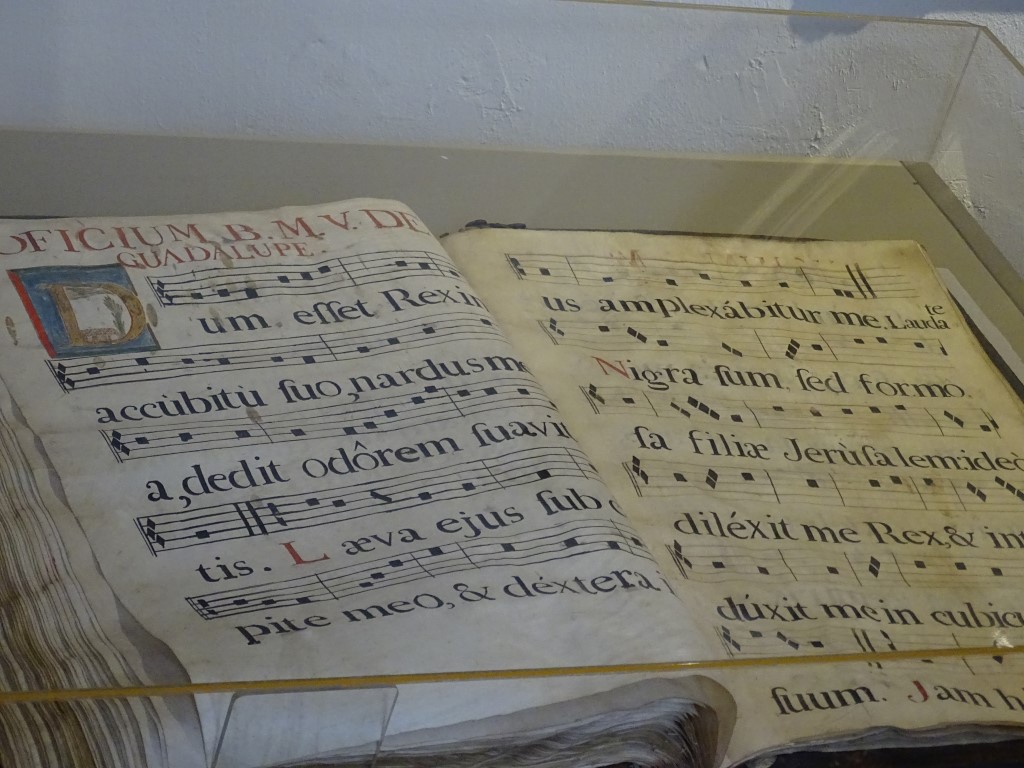 OFICIUM B. M. V. DE
GUADALUPE
Dum eſſet Rex in
accùbitù ſuo, nardus me
a, dedit odôrem ſuavi
tis. Læva ejus ſub c
pite meo, & déxtera
us amplexábitur me. Laudate
Nigra ſum ſed formo
ſa filiæ Jerùſalem: ideò
diléxit me Rex, & int
dúxit me in cubicu
ſuum. Jam h